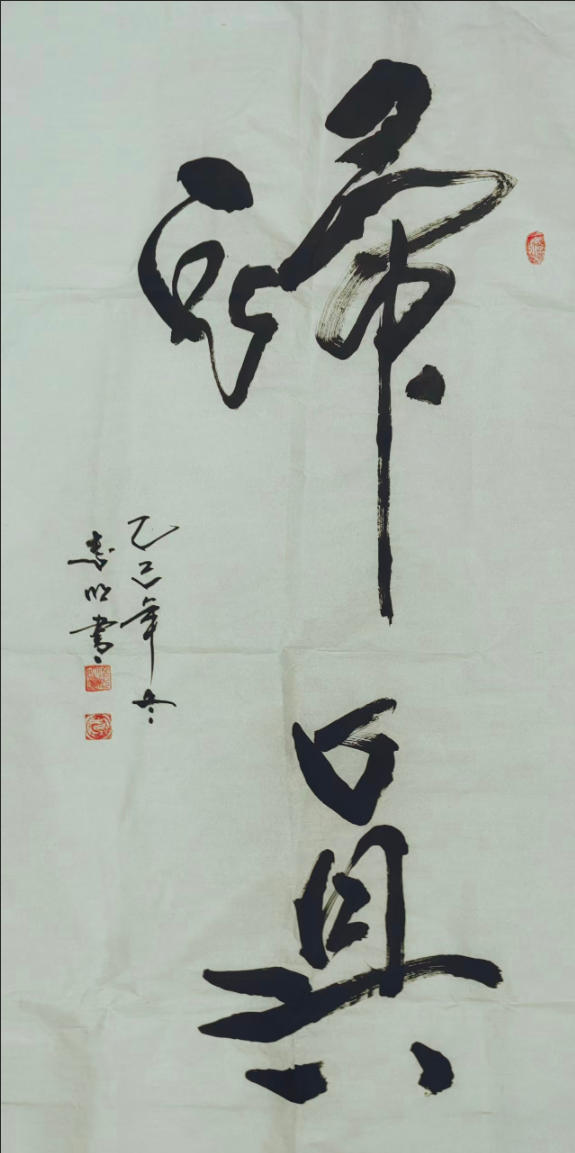 歸真
乙巳年冬
明書